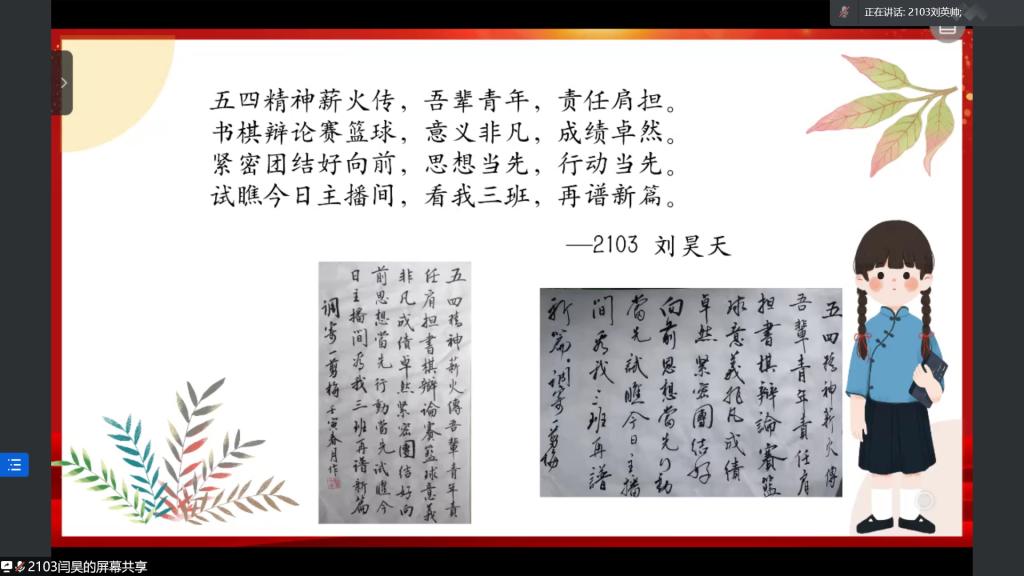 正在讲话: 2103刘英帅;
五四精神薪火传，吾辈青年，责任肩担。
书棋辩论赛篮球，意义非凡，成绩卓然。
紧密团结好向前，思想当先，行动当先。
试瞧今日主播间，看我三班，再谱新篇。
—2103 刘昊天
五四精神薪火傳吾辈青年責
任肩担書棋辯論賽籃球意義
非凡成绩卓然紧密團结好向
前思想當先行動當先試瞧今
日主播間看我三班再譜新篇
调寄一剪梅 壬寅春月作
五四精神薪火傳
吾辈青年責任肩
担書棋辯論賽籃
球意義非凡成绩
卓然紧密團结好
向前思想當先行動
當先試瞧今日主播
間看我三班再譜
新篇 调寄一剪梅
2103闫昊的屏幕共享